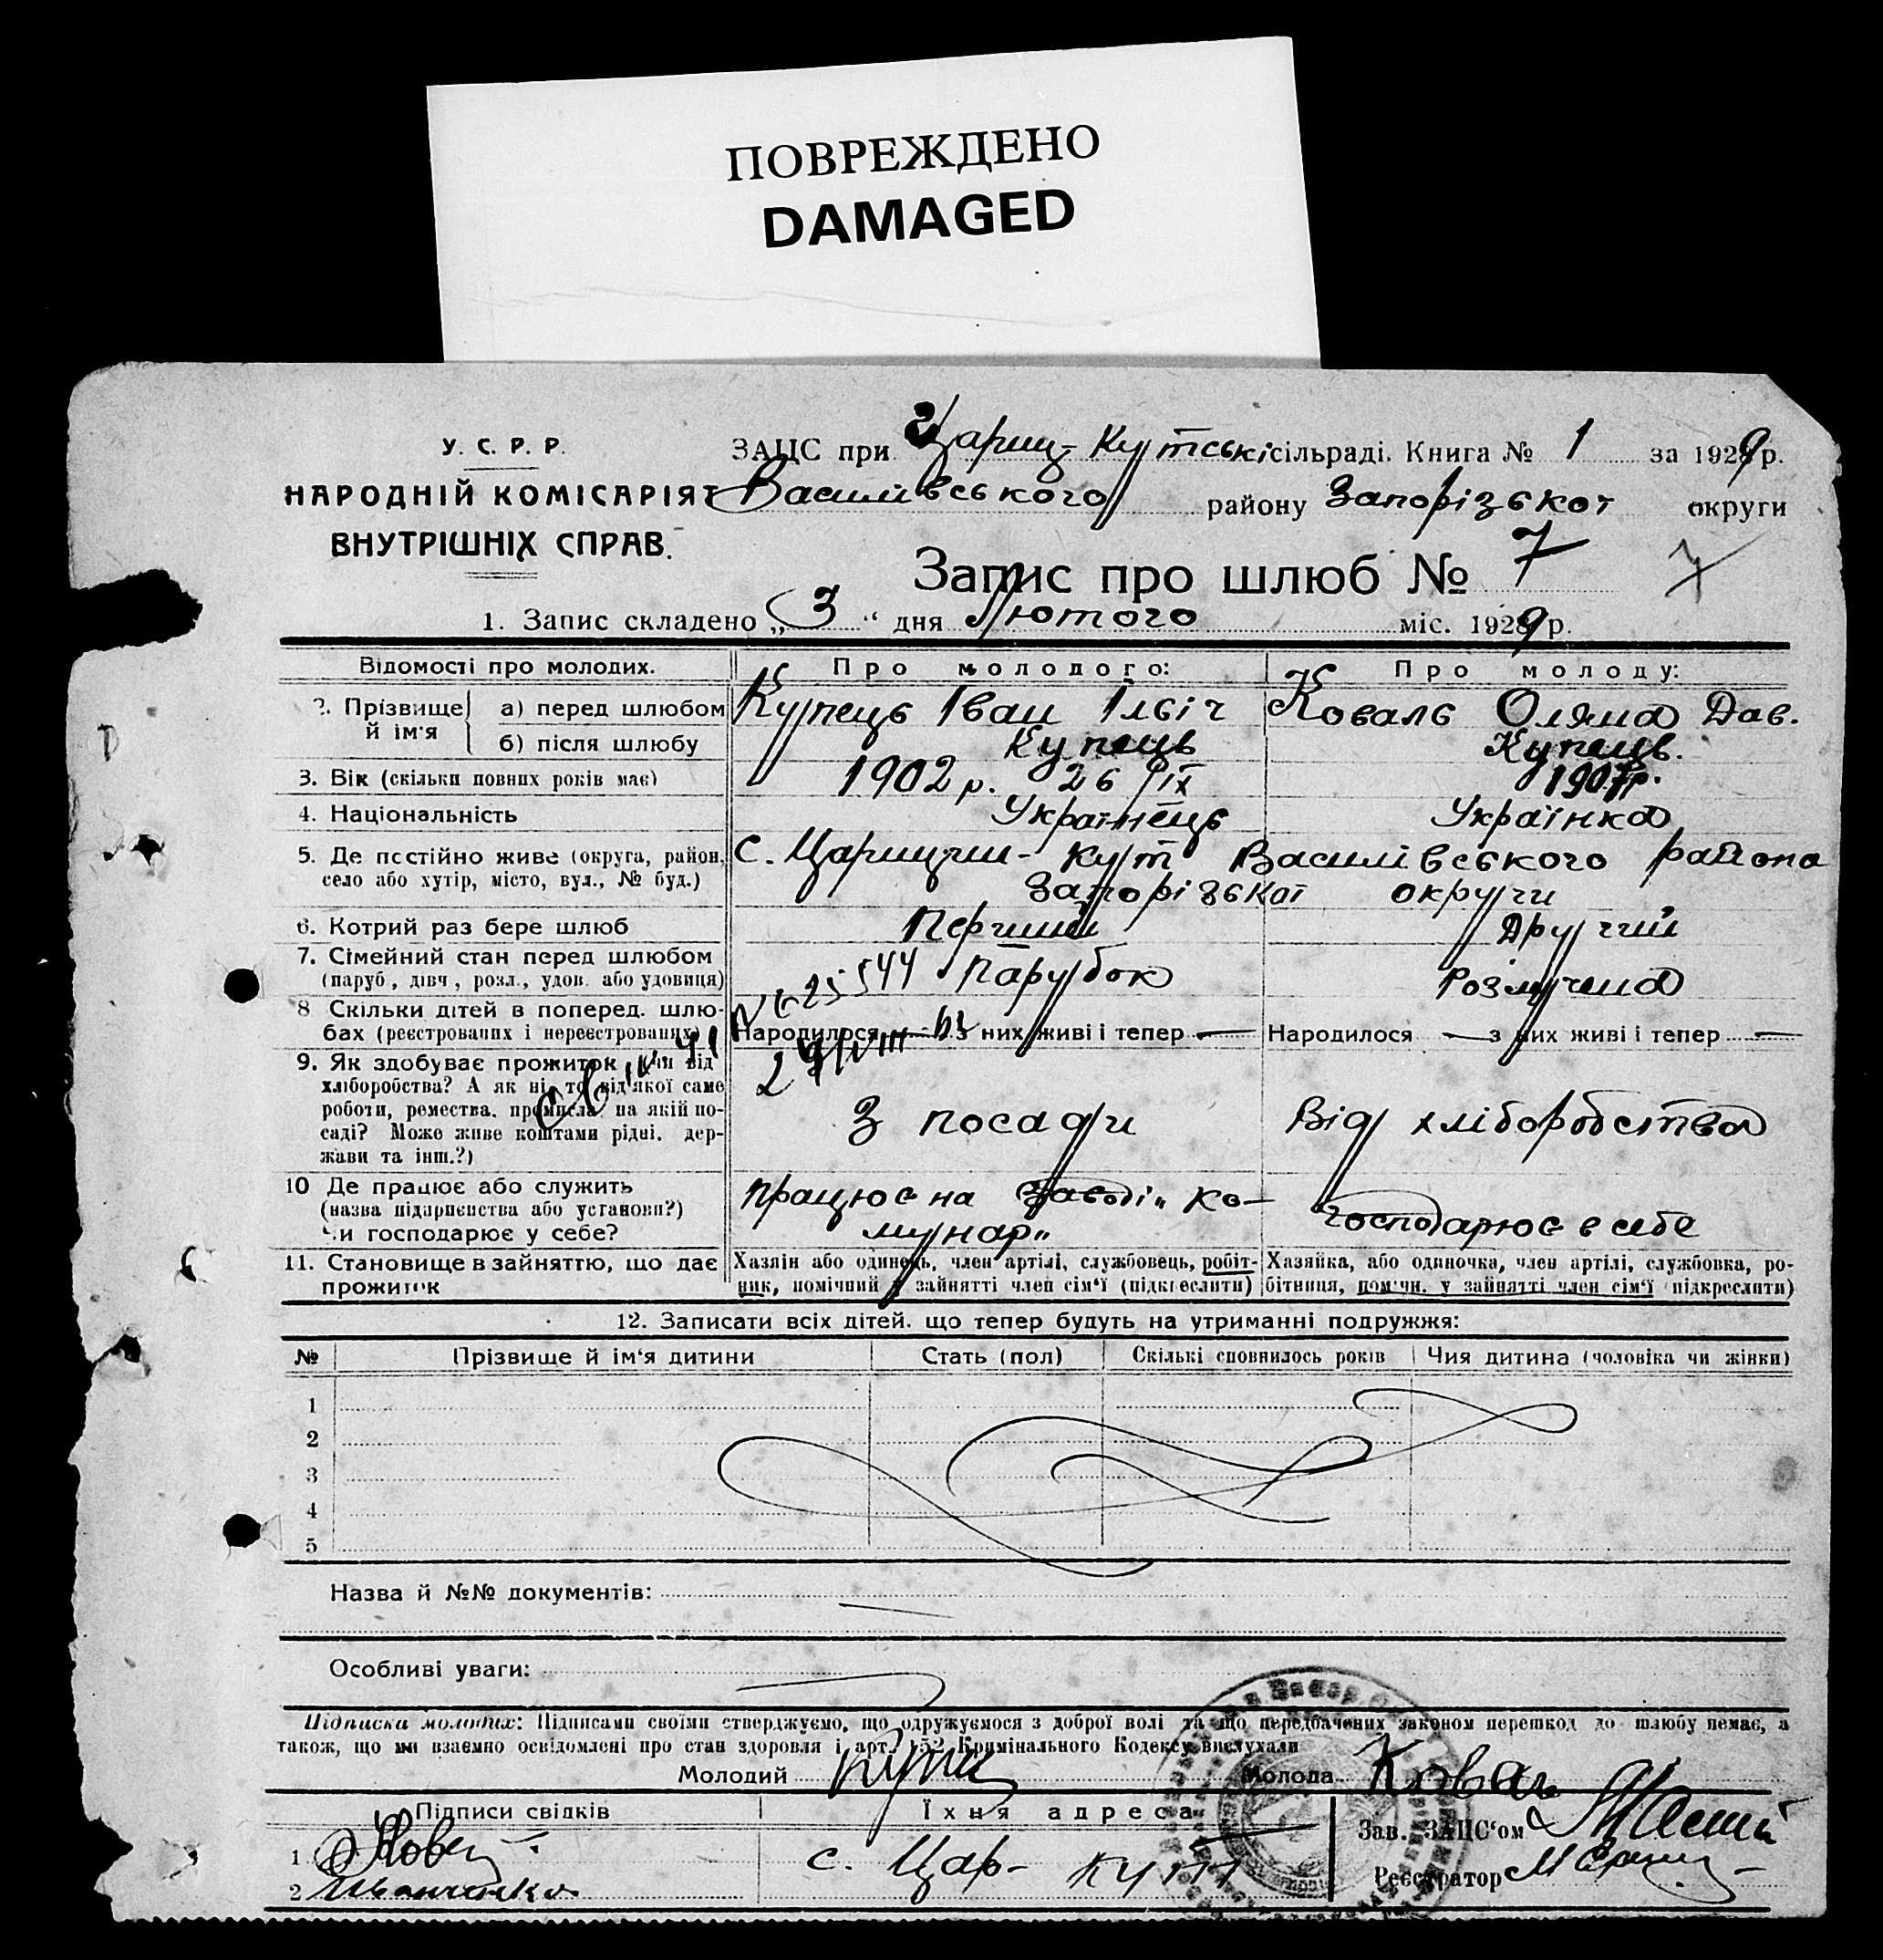 ПОВРЕЖДЕНО
DAMAGED
У. С. Р. Р.
НАРОДНІЙ КОМІСАРІЯТ
ВНУТРІШНІХ СПРАВ.
ЗАЦС при Цариц-Кутській сільраді. Книга № 1 за 1929 р.
Василівського району Запорізької округи
Запис про шлюб № 7 7
1. Запис складено „3“ дня Лютого міс. 1929 р.
Відомості про молодих. Про молодого: Про молоду:
2. Прізвище й ім'я а) перед шлюбом Купець Іван Ілвіч Коваль Оляна Дав.
б) після шлюбу Купець Купець.
3. Вік (скільки повних років має) 1902 р. 26 IX 1907 р.
4. Національність Українець Українка
5. Де постійно живе (округа, район, с. Царицин-Кут Василівського района
село або хутір, місто, вул., № буд.) Запорізької округи
6. Котрий раз бере шлюб Перший Другий
7. Сімейний стан перед шлюбом Парубок Розлучена
(паруб., дівч., розл., удов. або удовиця)
8 Скільки дітей в поперед. шлю-
бах (реєстрованих і нереєстрованих) Народилося — з них живі і тепер — Народилося — з них живі і тепер —
9. Як здобуває прожиток, чи від
хліборобства? А як ні, то від якої саме
роботи, ремества, промисла, на якій по- З посади Від хліборобства
саді? Може живе коштами рідні, дер-
жави та інш.?)
10 Де працює або служить Працює на заводі „Ко-
(назва підприємства або установи?) мунар„ Господарює в себе
чи господарює у себе?
11. Становище в зайняттю, що дає прожиток
Хазяїн або одинець, член артілі, службовець, робіт-
ник, помічний у зайнятті член сім'ї (підкреслити)
Хазяйка, або одиночка, член артілі, службовка, ро-
бітниця, помічн. у зайнятті член сім'ї (підкреслити)
12. Записати всіх дітей, що тепер будуть на утриманні подружжя:
№ Прізвище й ім'я дитини Стать (пол) Скількі сповнилось років Чия дитина (чоловіка чи жінки)
1
2
3
4
5
Назва й №№ документів: —
Особливі уваги:
Підписка молодих: Підписами своїми стверджуємо, що одружуємося з доброї волі та що передбачених законом перешкод до шлюбу немає, а
також, що ми взаємно освідомлені про стан здоровля і арт. 152 Кримінального Кодексу вислухали
Молодий Молода Коваль
Підписи свідків Їхня адреса
Зав. ЗАЦС'ом
1
с. Цар-Кут
Реєстратор
2 Іванченко